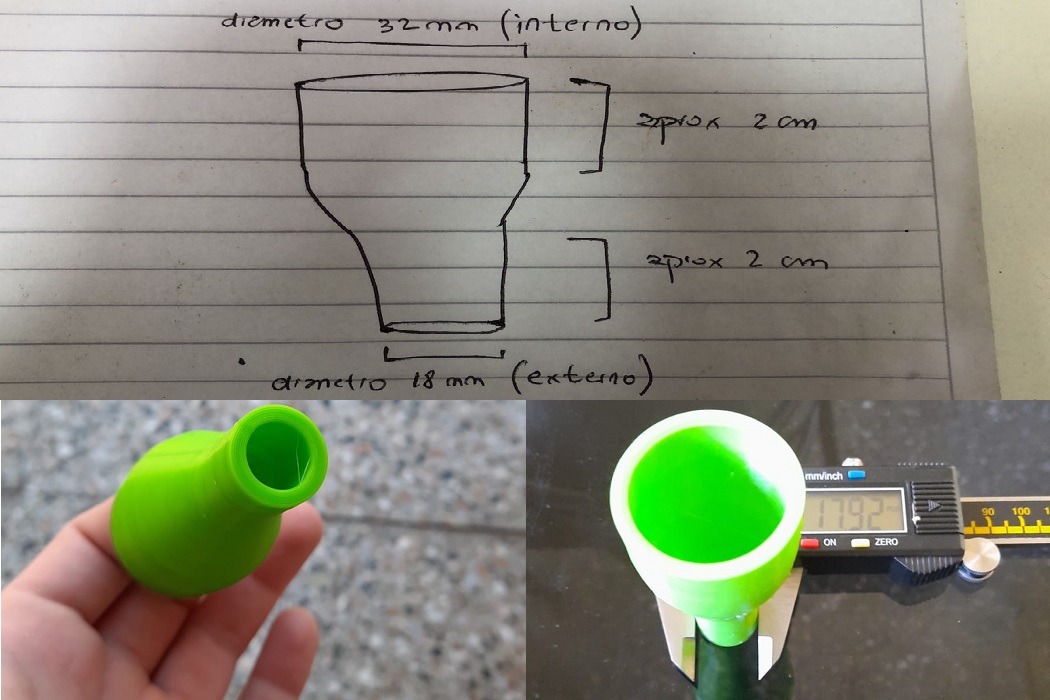 diametro 32 mm (interno)
aprox 2 cm
aprox 2 cm
diametro 18 mm (externo)
mm/inch
17.92
ON
ZERO
90 100